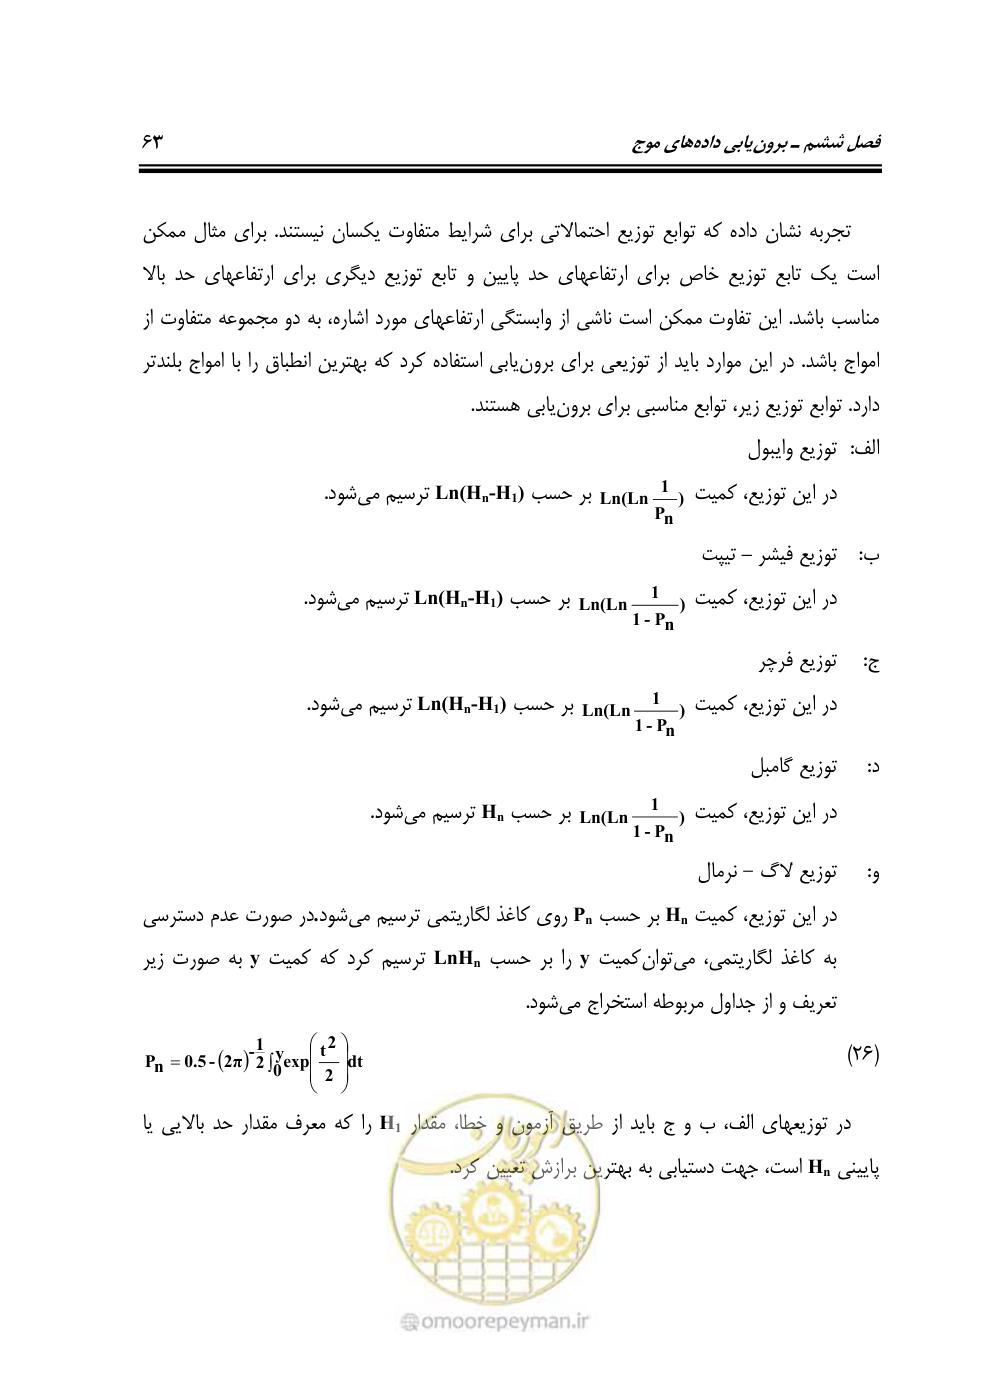 فصل ششم ـ برون‌یابی داده‌های موج ۶۳
تجربه نشان داده که توابع توزیع احتمالاتی برای شرایط متفاوت یکسان نیستند. برای مثال ممکن
است یک تابع توزیع خاص برای ارتفاعهای حد پایین و تابع توزیع دیگری برای ارتفاعهای حد بالا
مناسب باشد. این تفاوت ممکن است ناشی از وابستگی ارتفاعهای مورد اشاره، به دو مجموعه متفاوت از
امواج باشد. در این موارد باید از توزیعی برای برون‌یابی استفاده کرد که بهترین انطباق را با امواج بلندتر
دارد. توابع توزیع زیر، توابع مناسبی برای برون‌یابی هستند.
الف: توزیع وایبول
در این توزیع، کمیت Ln(Ln 1/Pn) بر حسب Ln(Hn-H1) ترسیم می‌شود.
ب: توزیع فیشر – تیپت
در این توزیع، کمیت Ln(Ln 1/(1 - Pn)) بر حسب Ln(Hn-H1) ترسیم می‌شود.
ج: توزیع فرچر
در این توزیع، کمیت Ln(Ln 1/(1 - Pn)) بر حسب Ln(Hn-H1) ترسیم می‌شود.
د: توزیع گامبل
در این توزیع، کمیت Ln(Ln 1/(1 - Pn)) بر حسب Hn ترسیم می‌شود.
و: توزیع لاگ – نرمال
در این توزیع، کمیت Hn بر حسب Pn روی کاغذ لگاریتمی ترسیم می‌شود.در صورت عدم دسترسی
به کاغذ لگاریتمی، می‌توان‌کمیت y را بر حسب LnHn ترسیم کرد که کمیت y به صورت زیر
تعریف و از جداول مربوطه استخراج می‌شود.
(۲۶) Pn = 0.5 - (2π)^(-1/2) ∫₀^y exp(t²/2) dt
در توزیعهای الف، ب و ج باید از طریق آزمون و خطا، مقدار H1 را که معرف مقدار حد بالایی یا
پایینی Hn است، جهت دستیابی به بهترین برازش تعیین کرد.
امور پیمان
@omoorepeyman.ir